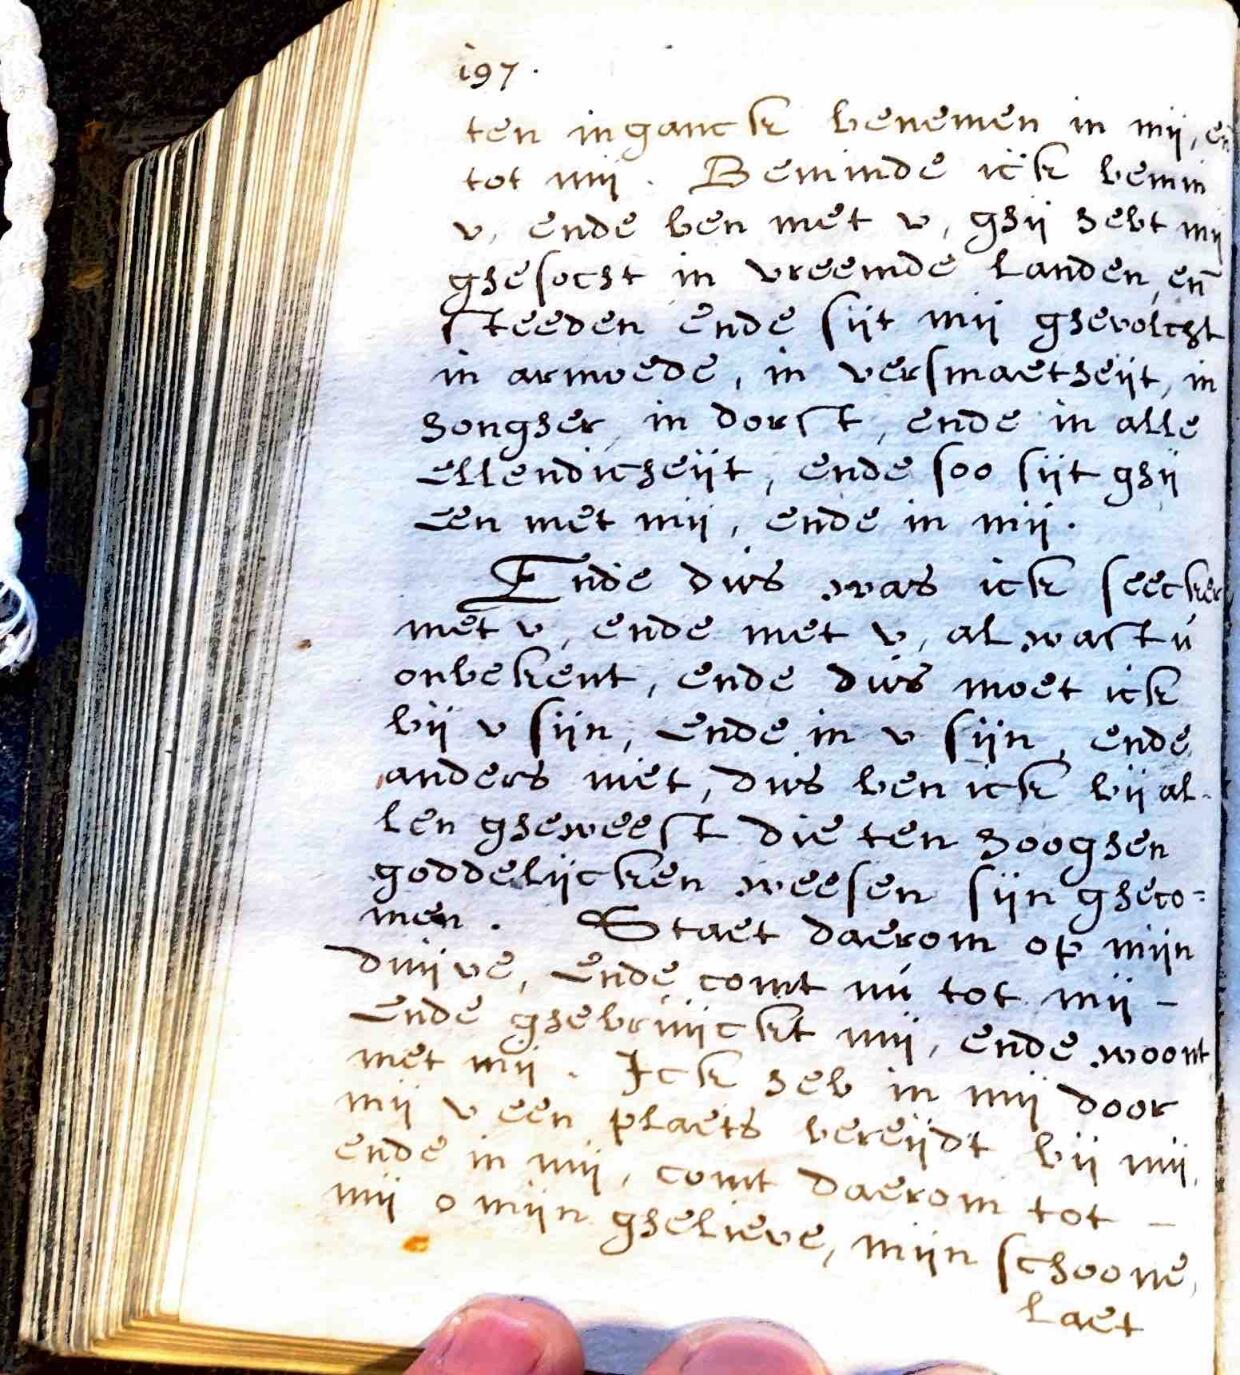 197.
ten inganck benemen in mij, en̄
tot mij. Beminde ick bemin
v, ende ben met v, ghij hebt mij
ghesocht in vreemde landen, en̄
steeden ende sijt mij ghevolcht
in armoede, in versmaetheijt, in
hongher, in dorst, ende in alle
ellendicheijt, ende soo sijt ghij
een met mij, ende in mij.
Ende dus was ick seecker
met v, ende met v, al wast ú
onbekent, ende dus moet ick
bij v sijn, ende in v sijn, ende
anders niet, dus ben ick bij al-
len gheweest die ten hooghen
goddelijcken weesen sijn gheco=
men. Staet daerom op mijn
duijve, ende comt nú tot mij -
ende ghebruijckt mij, ende woont
met mij. Ick heb in mij door
mij v een plaets bereijdt bij mij,
ende in mij, comt daerom tot -
mij o mijn ghelieve, mijn schoone,
laet